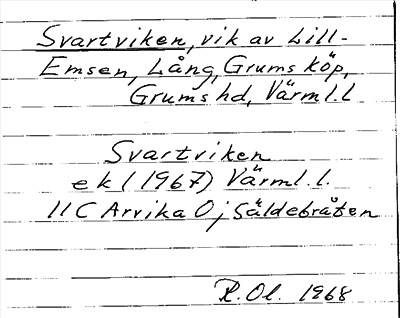 Svartviken, vik av Lill-
Emsen, Lång, Grums köp,
Grums hd, Värml.l
Svartviken
ek (1967) Värml.l.
11C Arvika O; Säldebråten
R.Ol. 1968